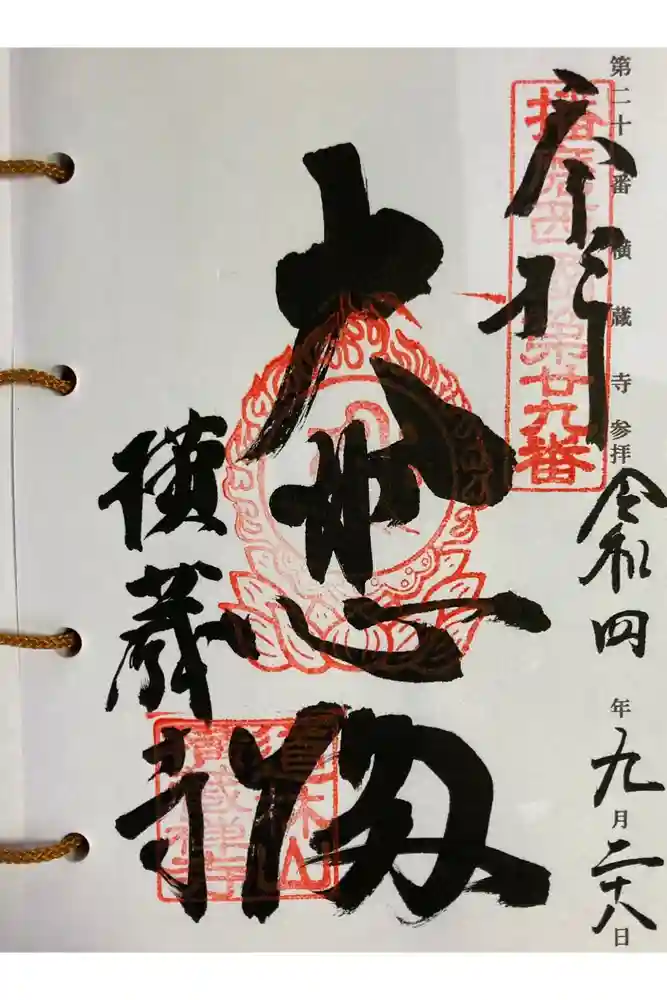 第二十番横蔵寺参拝
奉拝
播磨西国第廿九番
令和四年九月二十八日
大悲殿
横蔵寺
横蔵禅寺